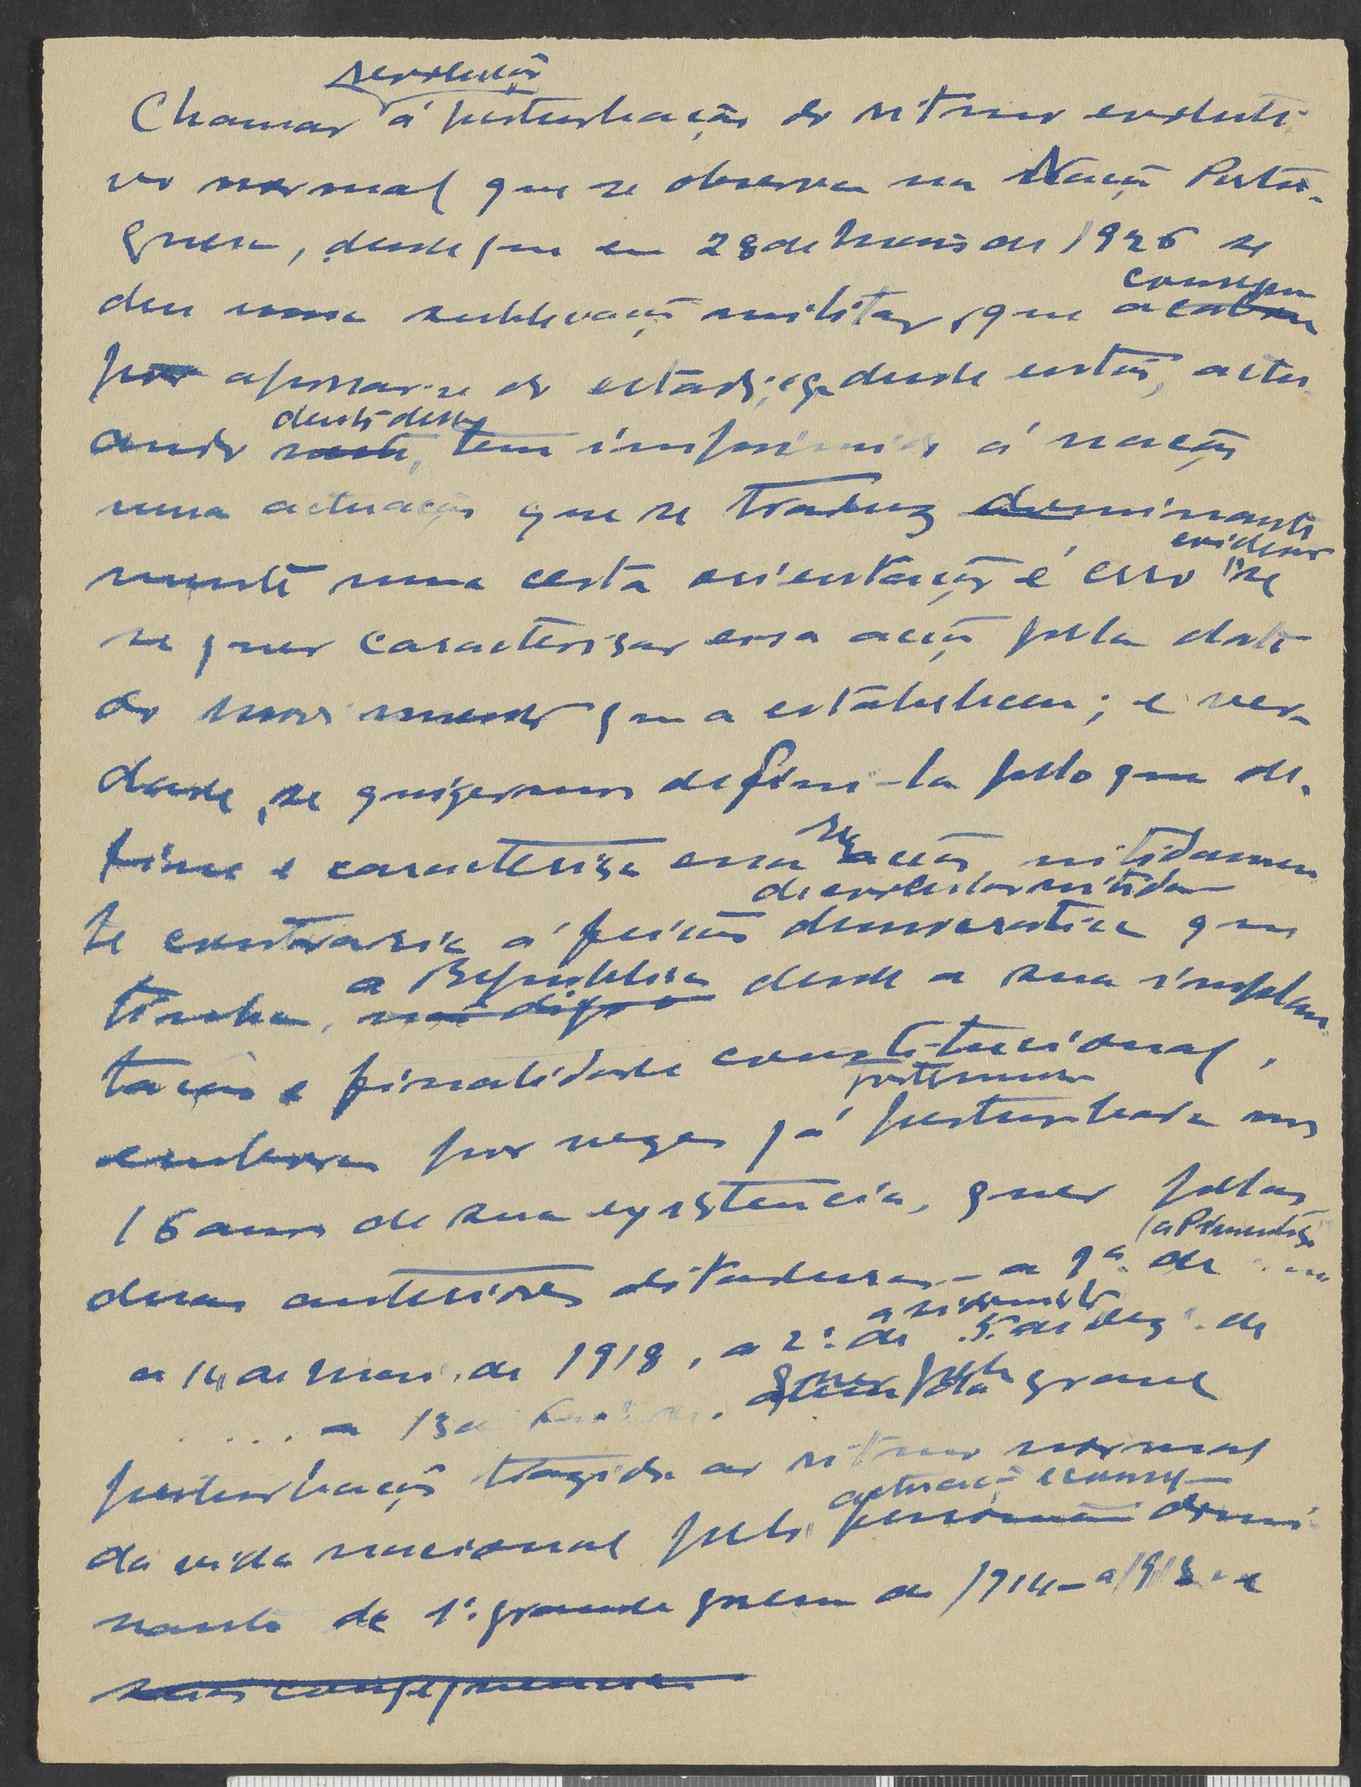 revolução
Chamar á perturbação do ritmo evoluti-
vo normal que se observa na Nação Portu-
guesa, desde que em 28 de Maio de 1926 se
conseguiu
deu uma sublevação militar, que acabou
por apossar-se do estado; e que desde então, actu
dentro desse
ando neste, tem imprimido á nação
uma actuação que se traduz dominante
evidente
mente numa certa orientação é erro se
se quer caracterisar essa acção pela data
do movimento que a estabeleceu; e ver-
dade, se quizermos defini-la pelo que de-
fine e caracterisa essa acção nitidamen
te contraria á feição democratica que
a Republica
tinha, desde a sua implan
tação e finalidade constitucional,
embora por vezes já perturbada nos
16 anos de sua existencia, quer pelas
duas anteriores ditaduras - a 1ª de
a 14 de Maio de 1918, a 2ª de 5 de Dez. de
a sidonista
.... a 13 de quer pela grave
perturbação trazida ao ritmo normal
actuação
da vida nacional pelo domi
nante da 1ª grande guerra de 1914 - a 1918 e
suas consequencias